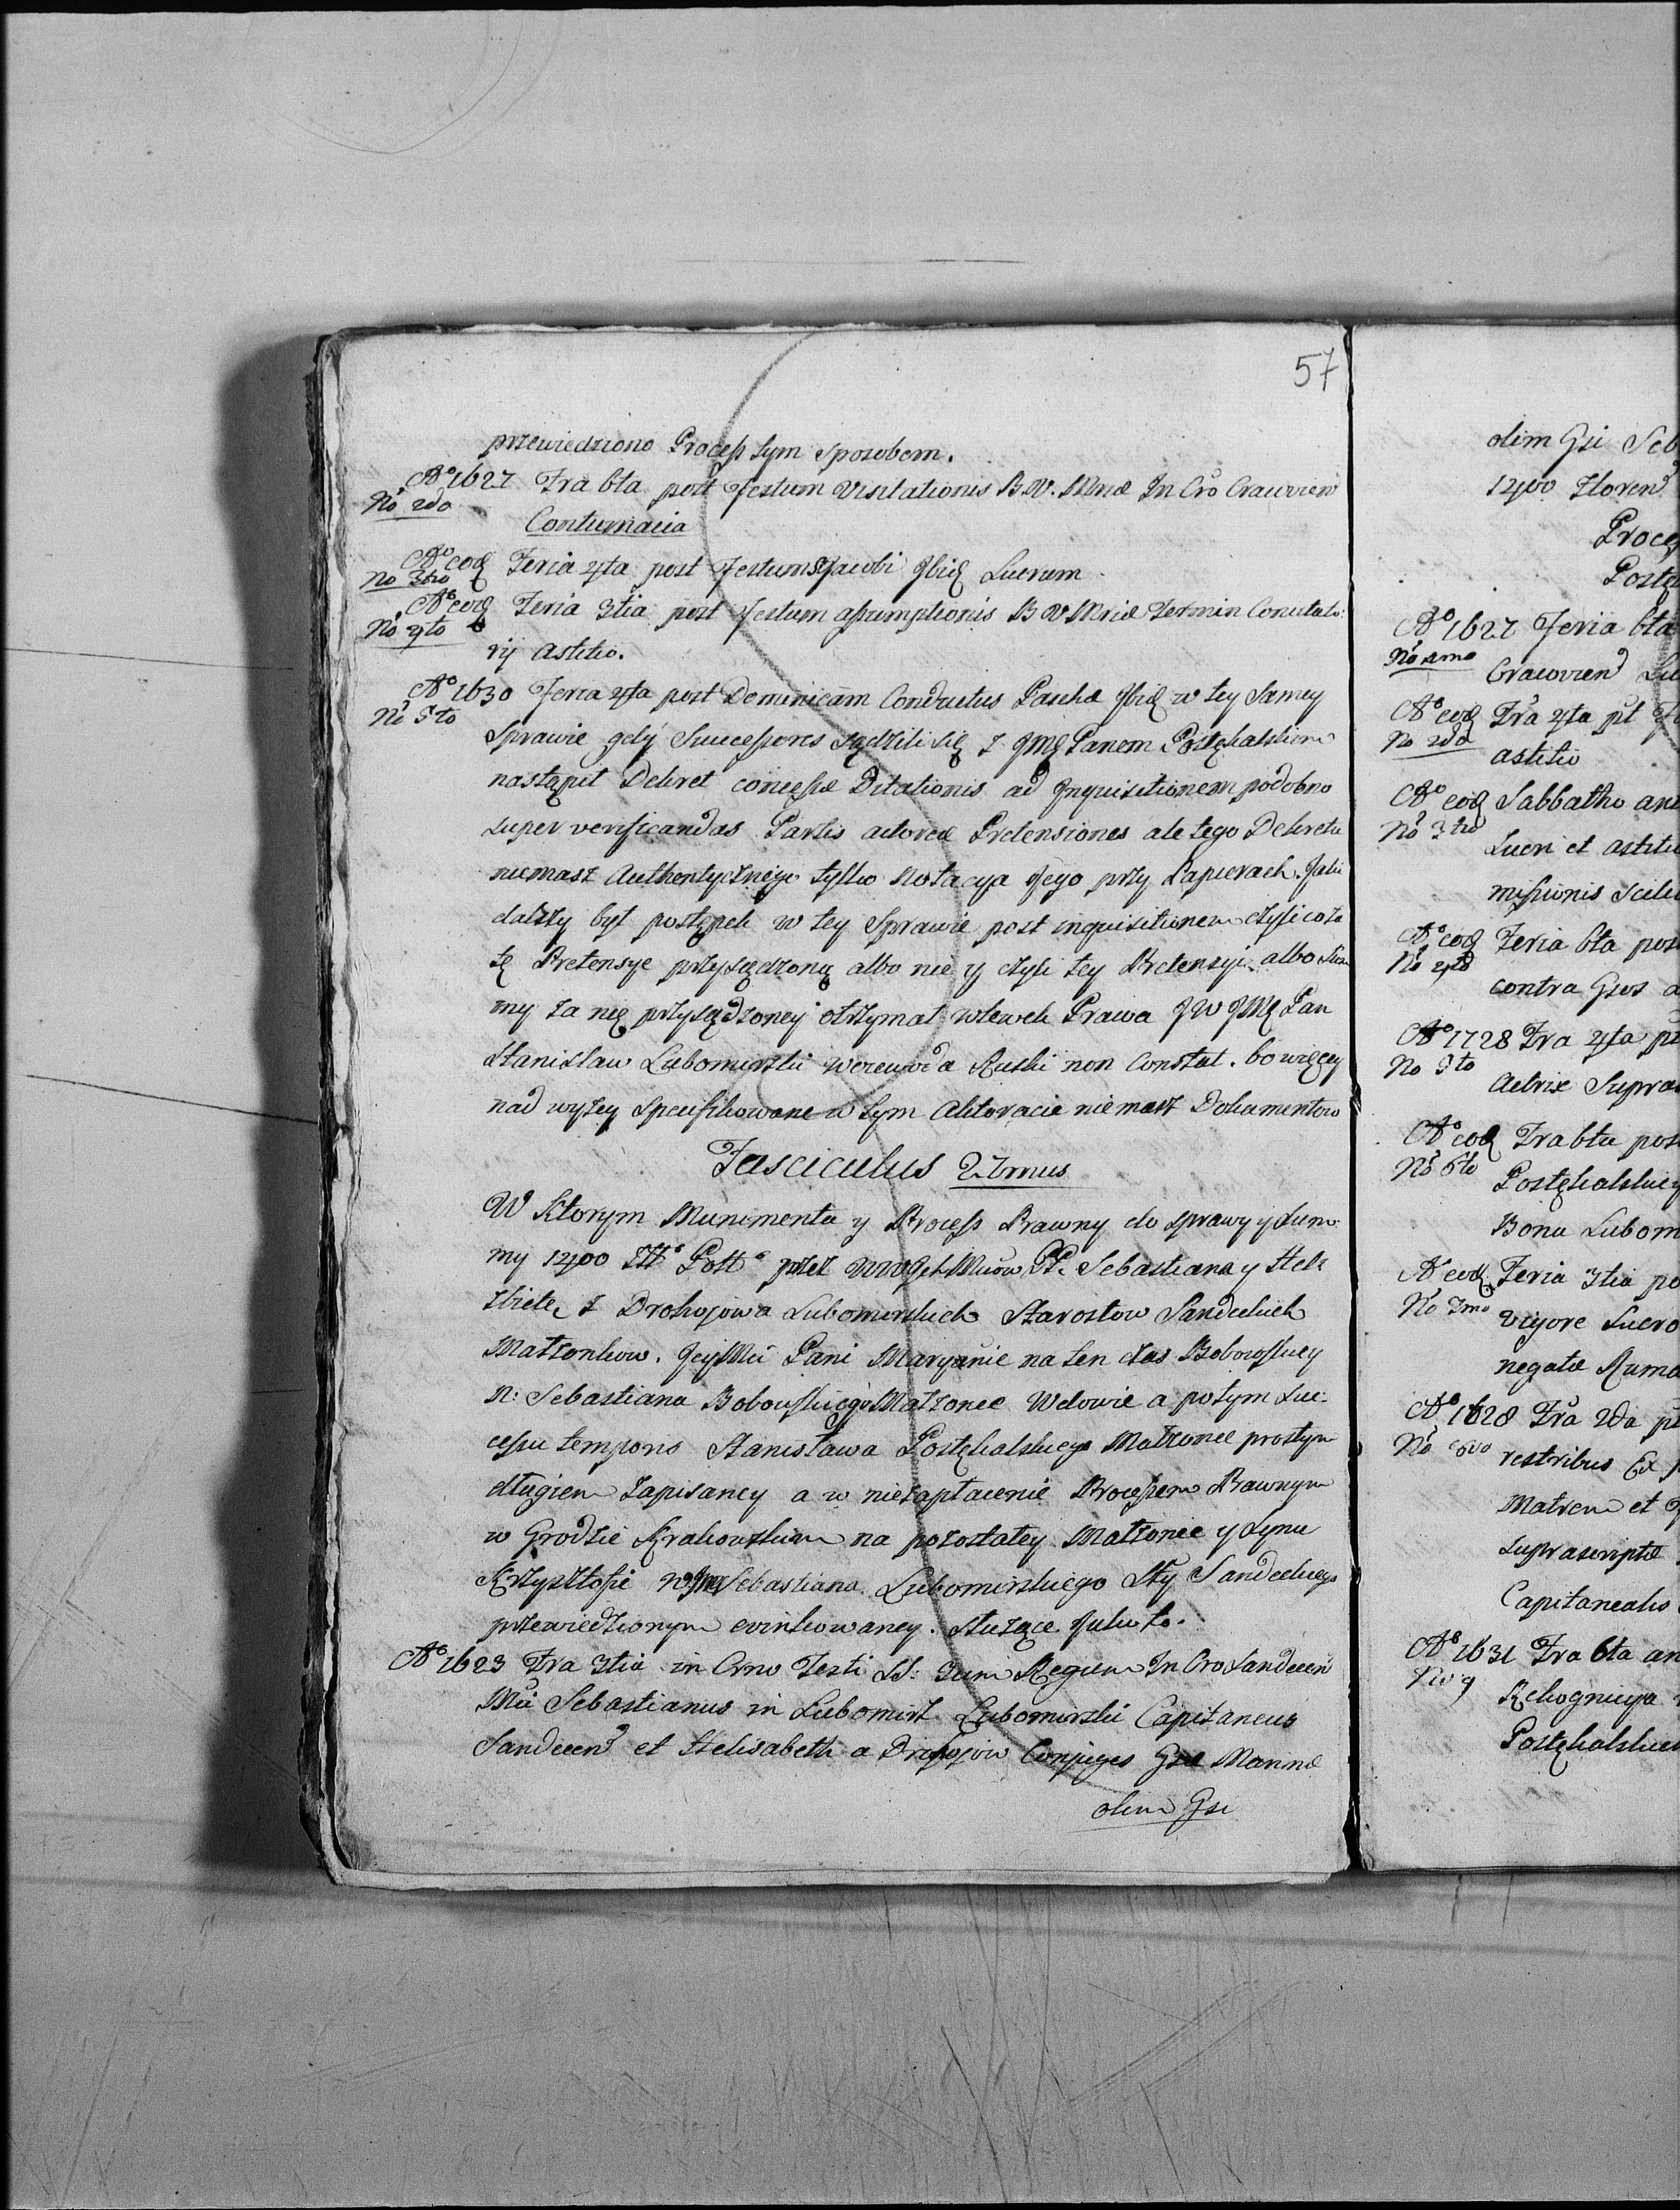 57
przewiedziono Process tym sposobem.
Aº 1627 Fra 6ta post Festum Visitationis B.V. Mriæ In Cro Cracovien
No 2do
Contumacia
Aº eod Feria 4ta post Festum S Jacobi Ibid Lucrum
No 3tio
Aº eod Feria 3tia post Festum assumptionis B V Mriæ Termin Concitato:
No 4to
rij astitio.
Aº 1630 Feria 4ta post Dominicam Conductus Paschæ Ibid w tey Samey
No 5to
Sprawie gdÿ Successores sądzili się z JMę Panem Postękalskim
nastąpił Dekret concessæ Dilationis ad Inquisitionem podobno
super verificandas Partis actoreæ Pretensiones ale tego Dekretu
niemasz Authentycznego tylko Notacya Jego przy Papierach. Jaki
dalszy był postępek w tey Sprawie post inquisitionem czyli co za
tę Pretensye przysądzono albo nie y czyli tey Pretensyi albo Sum
my za nię przysądzoney otrzymał wlewek Prawa JW JMę Pan
Stanisław Lubomirski Woiewoda Ruski non Constat. bo więcey
nad wyżey specifikowane w tym Aktoracie niemasz Dokumentow
Fasciculus 27mus
W Ktorym Munimenta y Process Prawny do sprawy y Sum:
my 1400 Złº Polº przez Sebastiana y Hel:
żbietę z Drohojowa Lubomirskich Starostow Sandeckich
Małżonkow. JeyMci Pani Maryannie na ten czas Bobowskiey
N: Sebastiana Bobowskiego Małżonce Wdowie a potym Suc:
cessu temporis Stanisława Postękalskiego Małżonce prostym
długiem zapisaney a w niezapłacenie Processem Prawnym
w Grodzie Krakowskim na pozostałey Małżonce y Synu
Krzysztofie Sebastiana Lubomirskiego Stÿ Sandeckiego
przewiedzionym ewinkowaney. służące Jako to.
Aº 1623 Fra 3tia in Crno Festi SS: 3um Regum In Cro Sandecen
Mci Sebastianus in Lubomirz Lubomirski Capitaneus
Sandecen et Helisabeth a Drohojow Conjuges Gsæ Mariannæ
olim Gsi
olim Gsi Seb
1400 Floren
Proce
Postę
Aº 1627 Feria 6ta
No 1mo
Cracovien Lu
Aº eod Fra 4ta pt
No 2do
astitio
Aº eod Sabbatho an
No 3tio
Lucri et astiti
missionis Scili
Aº eod Feria 6ta pos
No 4to
contra Gsos a
Aº 1728 Fra 4ta pt
No 5to
Actrix Supra
Aº eod Fra 6ta pos
No 6to
Postękalskiey
Bona Lubom
Aº eod Feria 3tia po
No 7mo
vigore Lucro
negatæ Ruma
Aº 1628 Fra 2da p
No 8vo
restribus Ex
Matrem et
Suprascriptæ
Capitanealis
Aº 1631 Fra 6ta an
No 9
Rekognicya
Postękalskie